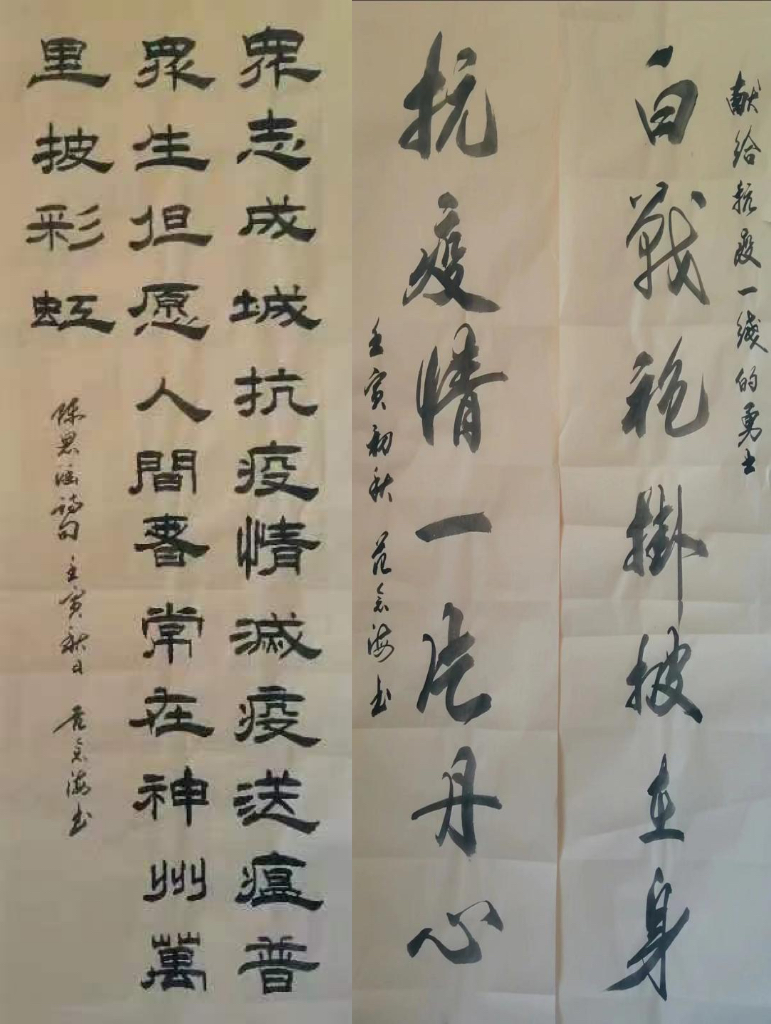 眾志成城抗疫情滅疫送瘟普
眾生但愿人間春常在神州萬
里披彩虹
陈思瑶詩句 壬寅秋日 范念海书
献给抗疫一线的勇士
白戰袍掛披在身
抗疫情一片丹心
壬寅初秋 范念海书